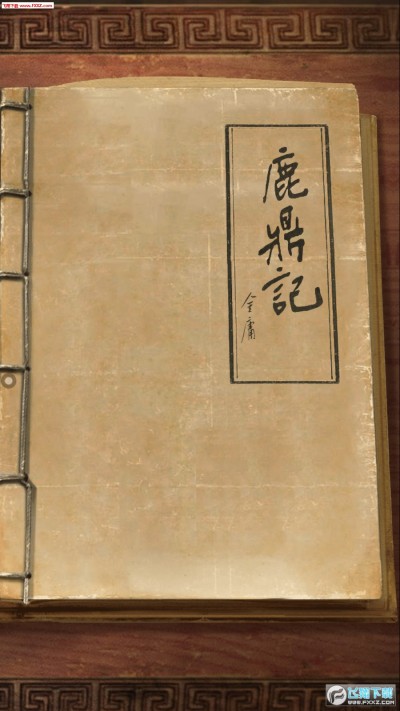 飞翔下载 www.FXXZ.com
鹿鼎記
金庸
飞翔下载
WWW.FXXZ.COM